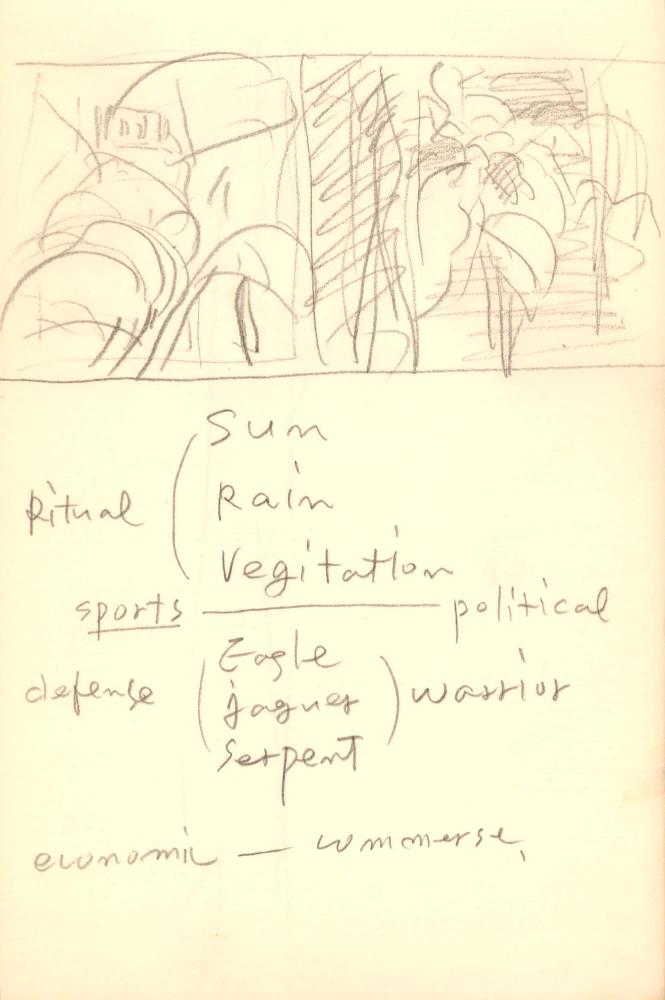 Sun
Ritual ( Rain
Vegitation
sports — political
Eagle
defense ( jaguer ) warrior
Serpent
economic — commerse,